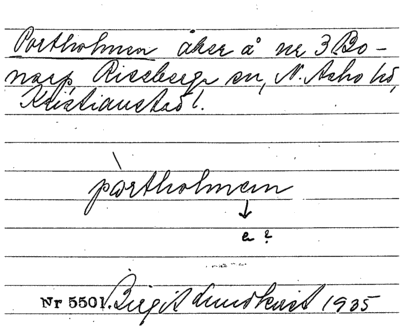 Portholmen åker å nr 3 Bo-
narp, Risebergs sn, N. Åsbo hd,
Kristianstad l.
portholmen
a ?
Nr 5501. Birgit Lundkvist 1935